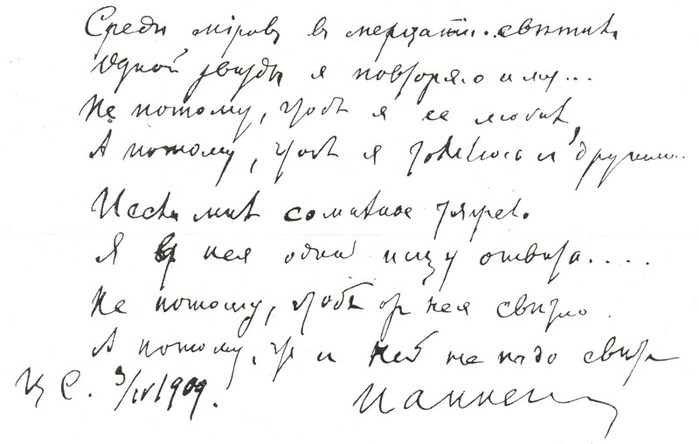 Среди мiровъ въ мерцанiи свѣтилъ
Одной звѣзды я повторяю имя...
Не потому, чтобъ я ее любилъ,
А потому, что я томлюсь съ другими..
И если мнѣ сомнѣнье тяжело
Я у нея одной ищу отвѣта.....
Не потому, что отъ нея свѣтло.
А потому, что съ ней не надо свѣта
Ц С. 3/IV 1909.